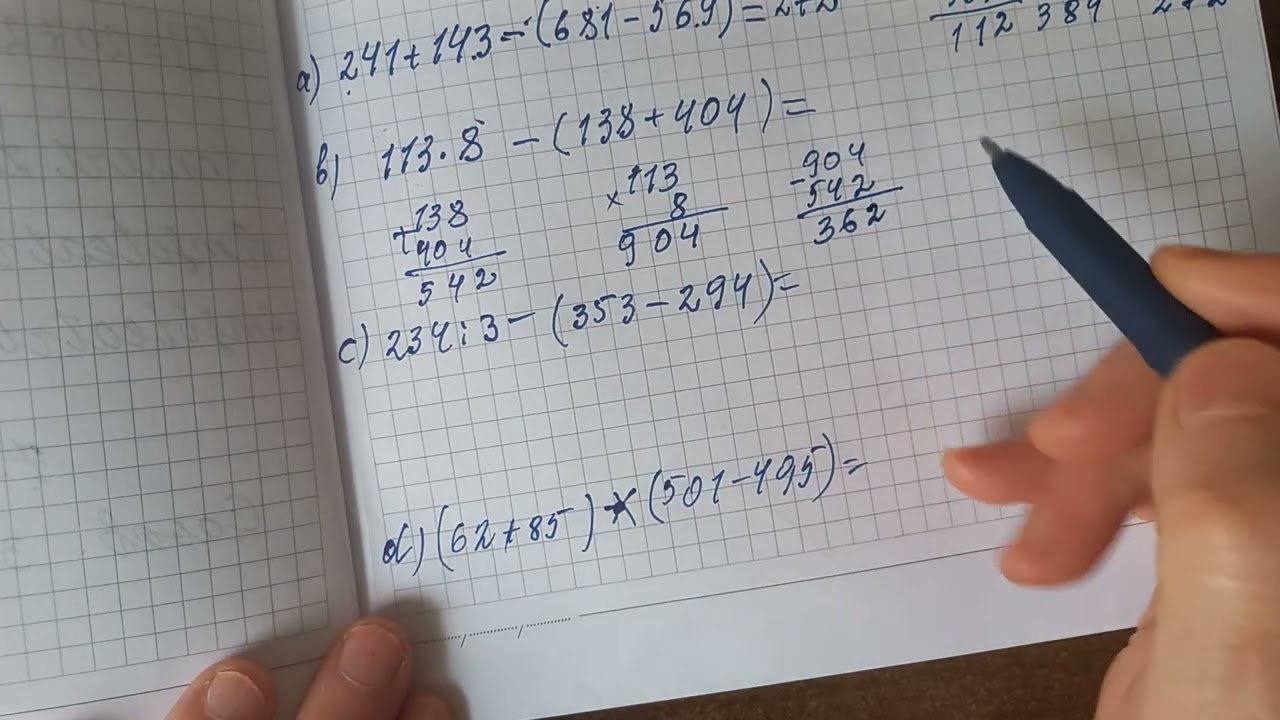 a) 241 + 143 - (681 - 569) = 272
112 384
b) 113 · 8 - (138 + 404) =
+ 138
404
542
× 113
8
904
- 904
542
362
c) 234 : 3 - (353 - 294) =
d) (62 + 85) * (501 - 495) =